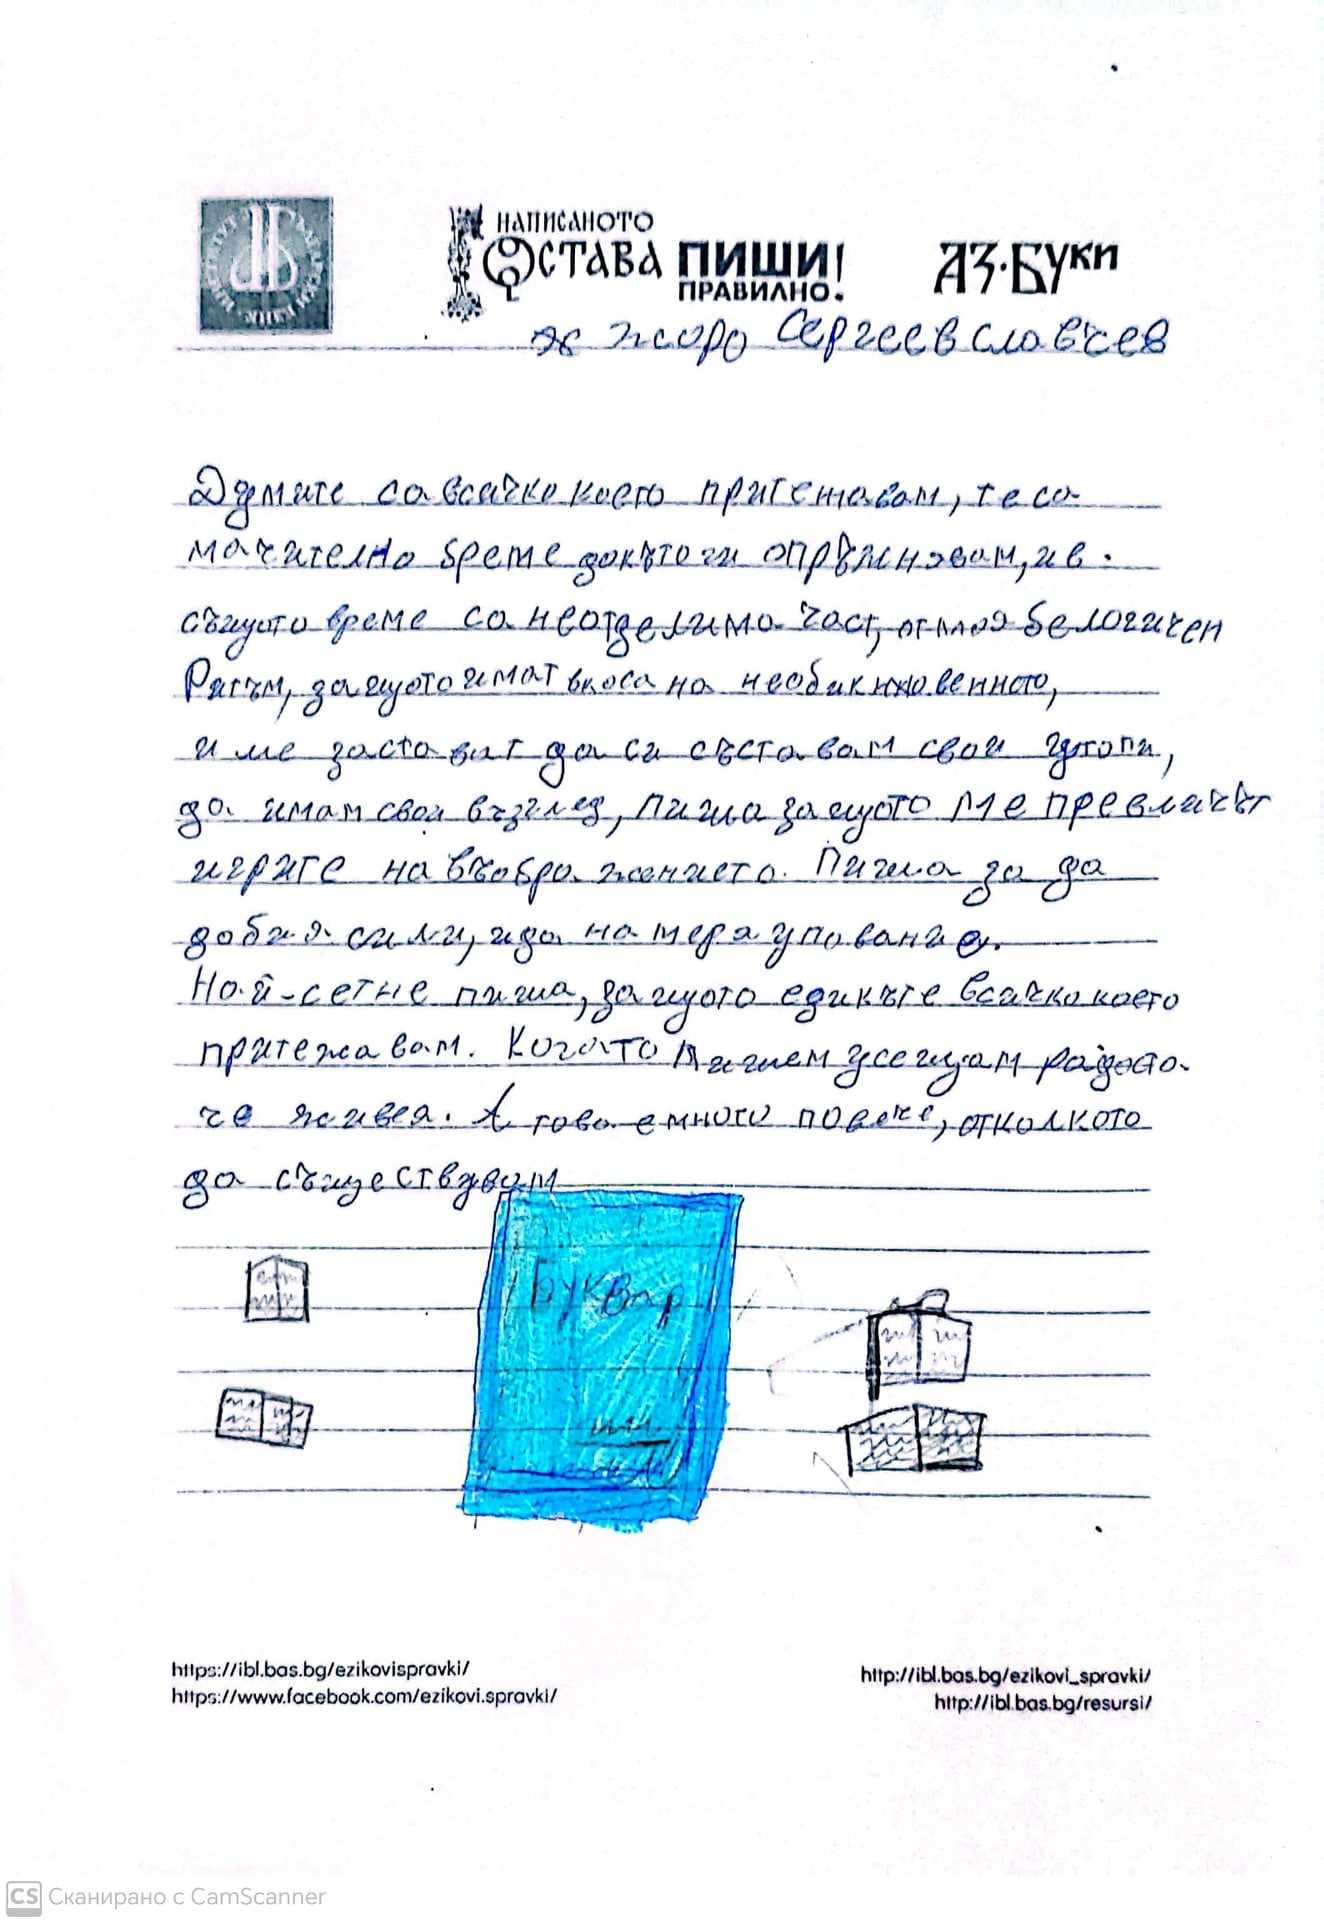 НАПИСАНОТО
ОСТАВА ПИШИ!
ПРАВИЛНО.
АЗ·БУКИ
Жоро Сергеев Славчев
Думите са всичко което притежавам, те са
мачително бреме докъто ги опръжнявам, и в
същото време са неотделима част, от моя белогичен
Ритъм, защото имат вкоса на необикновенното,
и ме заставят да си съставам свои утопи,
да имам свои възглед, пиша защото ме превличът
игрите на въображението. Пиша за да
добия сили, и да намеря упование.
Най-сетне пиша, защото едикъте всичко което
притежавам. Когато пишем усещам радоста
че живея. А това е много повече, отколкото
да съществувам
Буквар
https://ibl.bas.bg/ezikovispravki/
https://www.facebook.com/ezikovi.spravki/
http://ibl.bas.bg/ezikovi_spravki/
http://ibl.bas.bg/resursi/
CS Сканирано с CamScanner